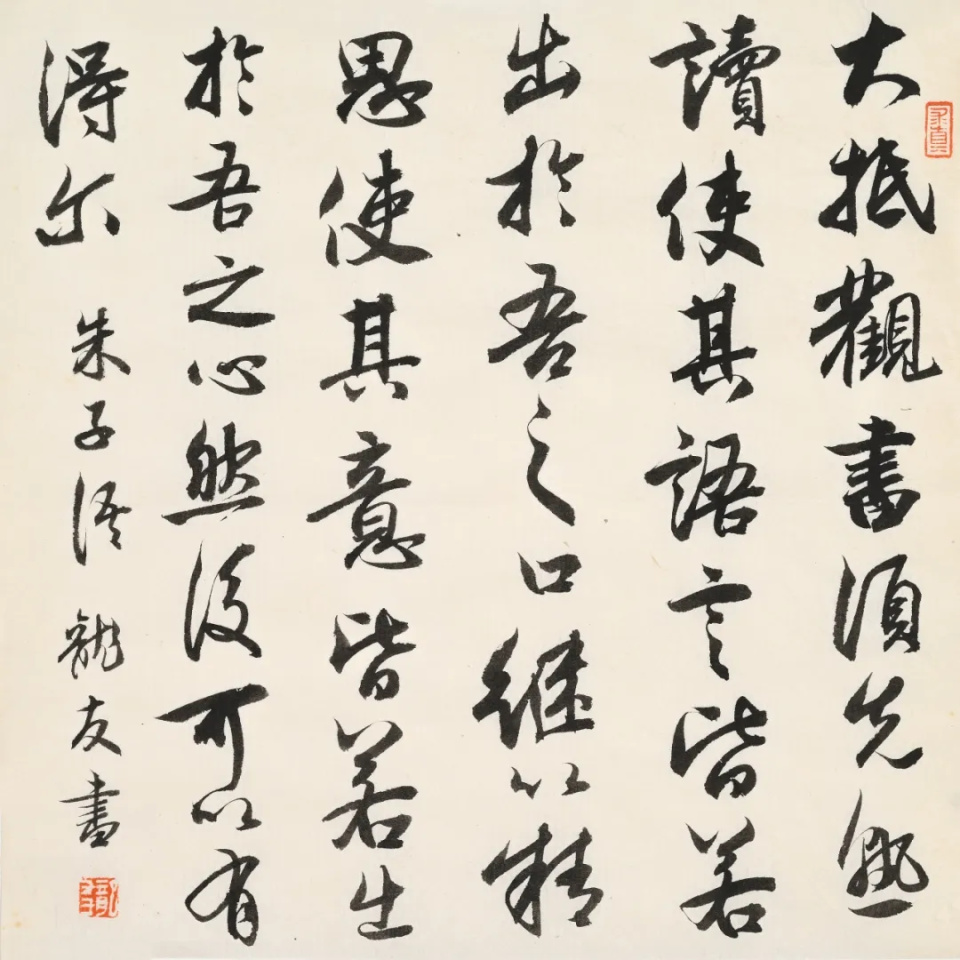 大抵觀書須先熟
讀使其語言皆若
出於吾之口継以精
思使其意皆若生
於吾之心然後可以有
得尔
朱子語 龍友書